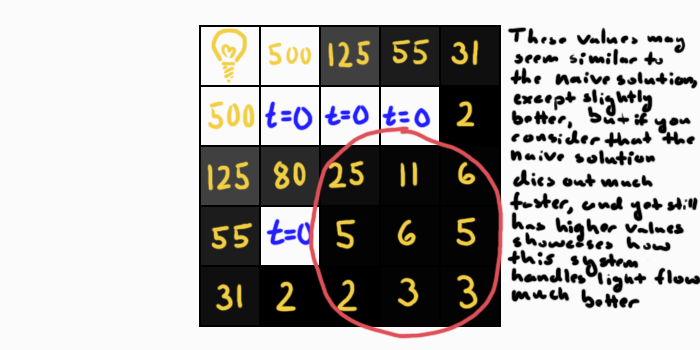 500 125 55 31
500 t=0 t=0 t=0 2
125 80 25 11 6
55 t=0 5 6 5
31 2 2 3 3
These values may
seem similar to
the naive solution,
except slightly
better, but if you
consider that the
naive solution
dies out much
faster, and yet still
has higher values
showcases how
this system
handles light flow
much better